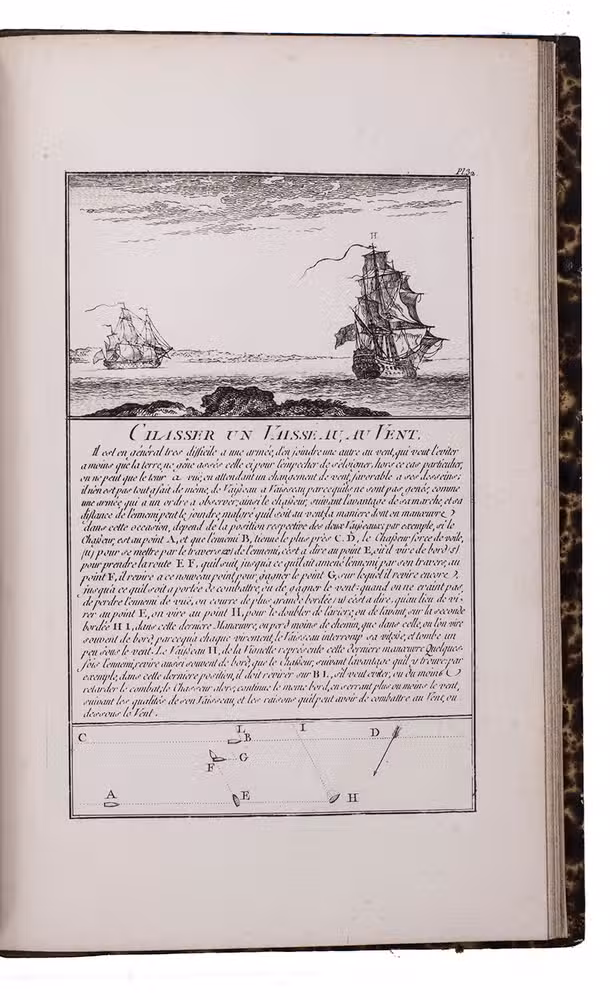 H
CHASSER UN VAISSEAU, AU VENT.
Il est en général tres difficile a une armée, d'en joindre une autre au vent, qui veut l'éviter
a moins que la terre, ne gêne assés celle ci pour l'empecher de s'éloigner, hors ce cas particulier,
on ne peut que le tenir a vuë, en attendant un changement de vent, favorable a ses desseins;
il n'en est pas tout afait de même, de Vaisseau a Vaisseau parcequ'ils ne sont pas genés, comme
une armée qui a un ordre a observer, ainsi le chasseur, suivant l'avantage de sa marche, et sa
distance de l'ennemi, peut le joindre, malgré qu'il soit au vent, la maniere dont on manœuvre
dans cette occasion, depend de la position respective des deux Vaisseaux; par exemple, si le
Chasseur, est au point A, et que l'ennemi B, tienne le plus près C. D, le Chasseur force de voile,
pour se mettre par le travers de l'ennemi, c'est a dire au point E, où il vire de bord
pour prendre la route E F, qu'il suit, jusqu'a ce qu'il ait amené l'ennemi par son travers, au
point F, il revire a ce nouveau point, pour gagner le point G, sur lequel il revire encore
jusqu'a ce qu'il soit a portée de combattre, ou de gagner le vent: quand on ne craint pas,
de perdre l'ennemi de vuë, on courre de plus grande bordée, c'est a dire, qu'au lieu de vi-
rer au point E, on vire au point H, pour le doubler de l'arriere, ou de l'avant, sur la seconde
bordée H I, dans cette derniere Manœuvre, on perd moins de chemin, que dans celle, ou l'on vire
souvent de bord, parcequ'a chaque virement, le Vaisseau interromp sa vitesse, et tombe un
peu sous le vent. Le Vaisseau H, de la Vignette represente cette derniere manœuvre Quelques-
fois l'ennemi, revire aussi souvent de bord, que le Chasseur, suivant l'avantage qu'il y trouve: par
exemple, dans cette derniere position, il doit revirer sur B L, s'il veut eviter, ou du moins
retarder le combat, le Chasseur alors, continue le meme bord, en serrant plus ou moins le vent,
suivant les qualités de son Vaisseau, et les raisons qu'il peut avoir de combattre au Vent, ou
dessous le Vent.
C L B I D
F G
A E H